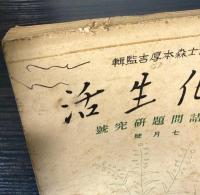 士森本厚吉監輯
化生活
話問題研究號
七月號